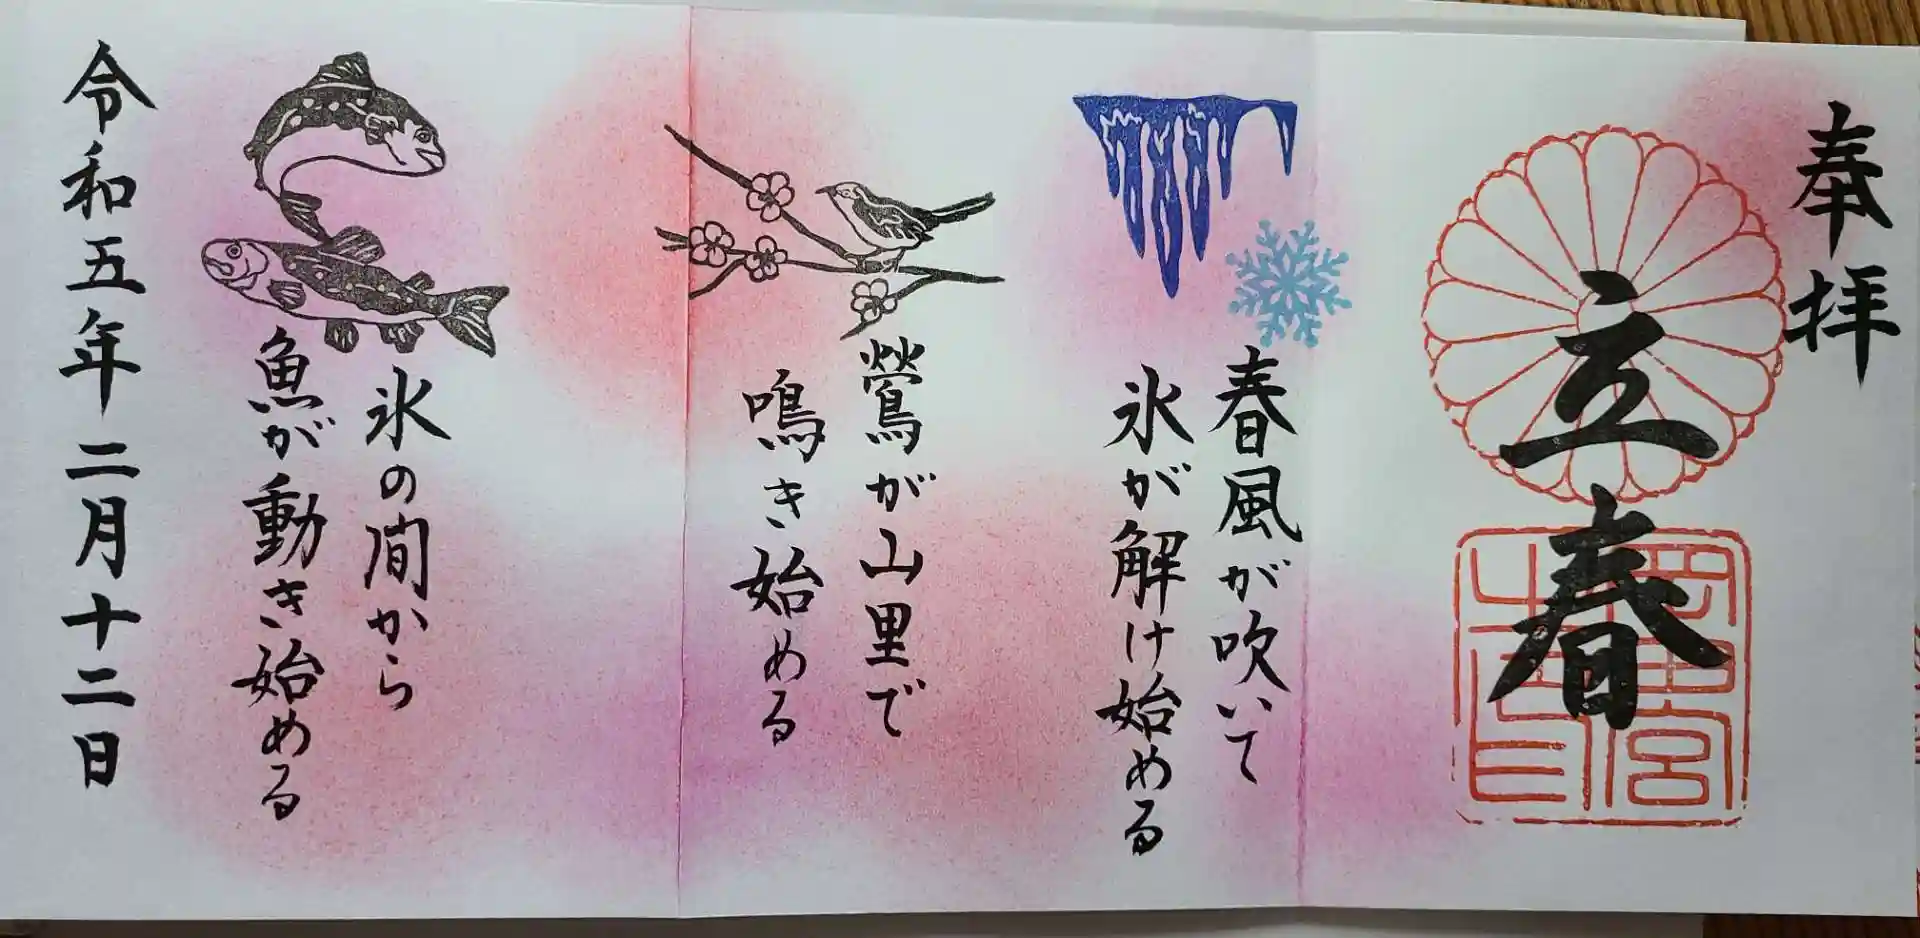 奉拝
立春
春風が吹いて
氷が解け始める
鶯が山里で
鳴き始める
氷の間から
魚が動き始める
令和五年二月十二日